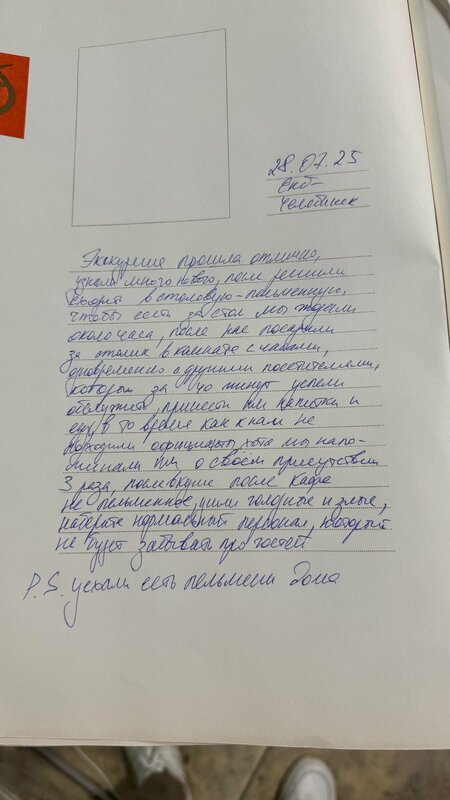 28.07.25
Екб-
Челябинск
Экскурсия прошла отлично,
узнали много нового, после решили
сходить в столовую-пельменную,
чтобы сесть за стол мы ждали
около часа, после нас посадили
за столик в комнате с часами,
одновременно с другими посетителями,
которых за 40 минут успели
обслужить, принести им напитки и
еду, в то время как к нам не
подходили официанты, хотя мы напо-
минали им о своем присутствии
3 раза, послевкусие после кафе
не пельменное, ушли голодные и злые,
наберите нормальный персонал, который
не будет забывать про гостей
P.S. уехали есть пельмени дома